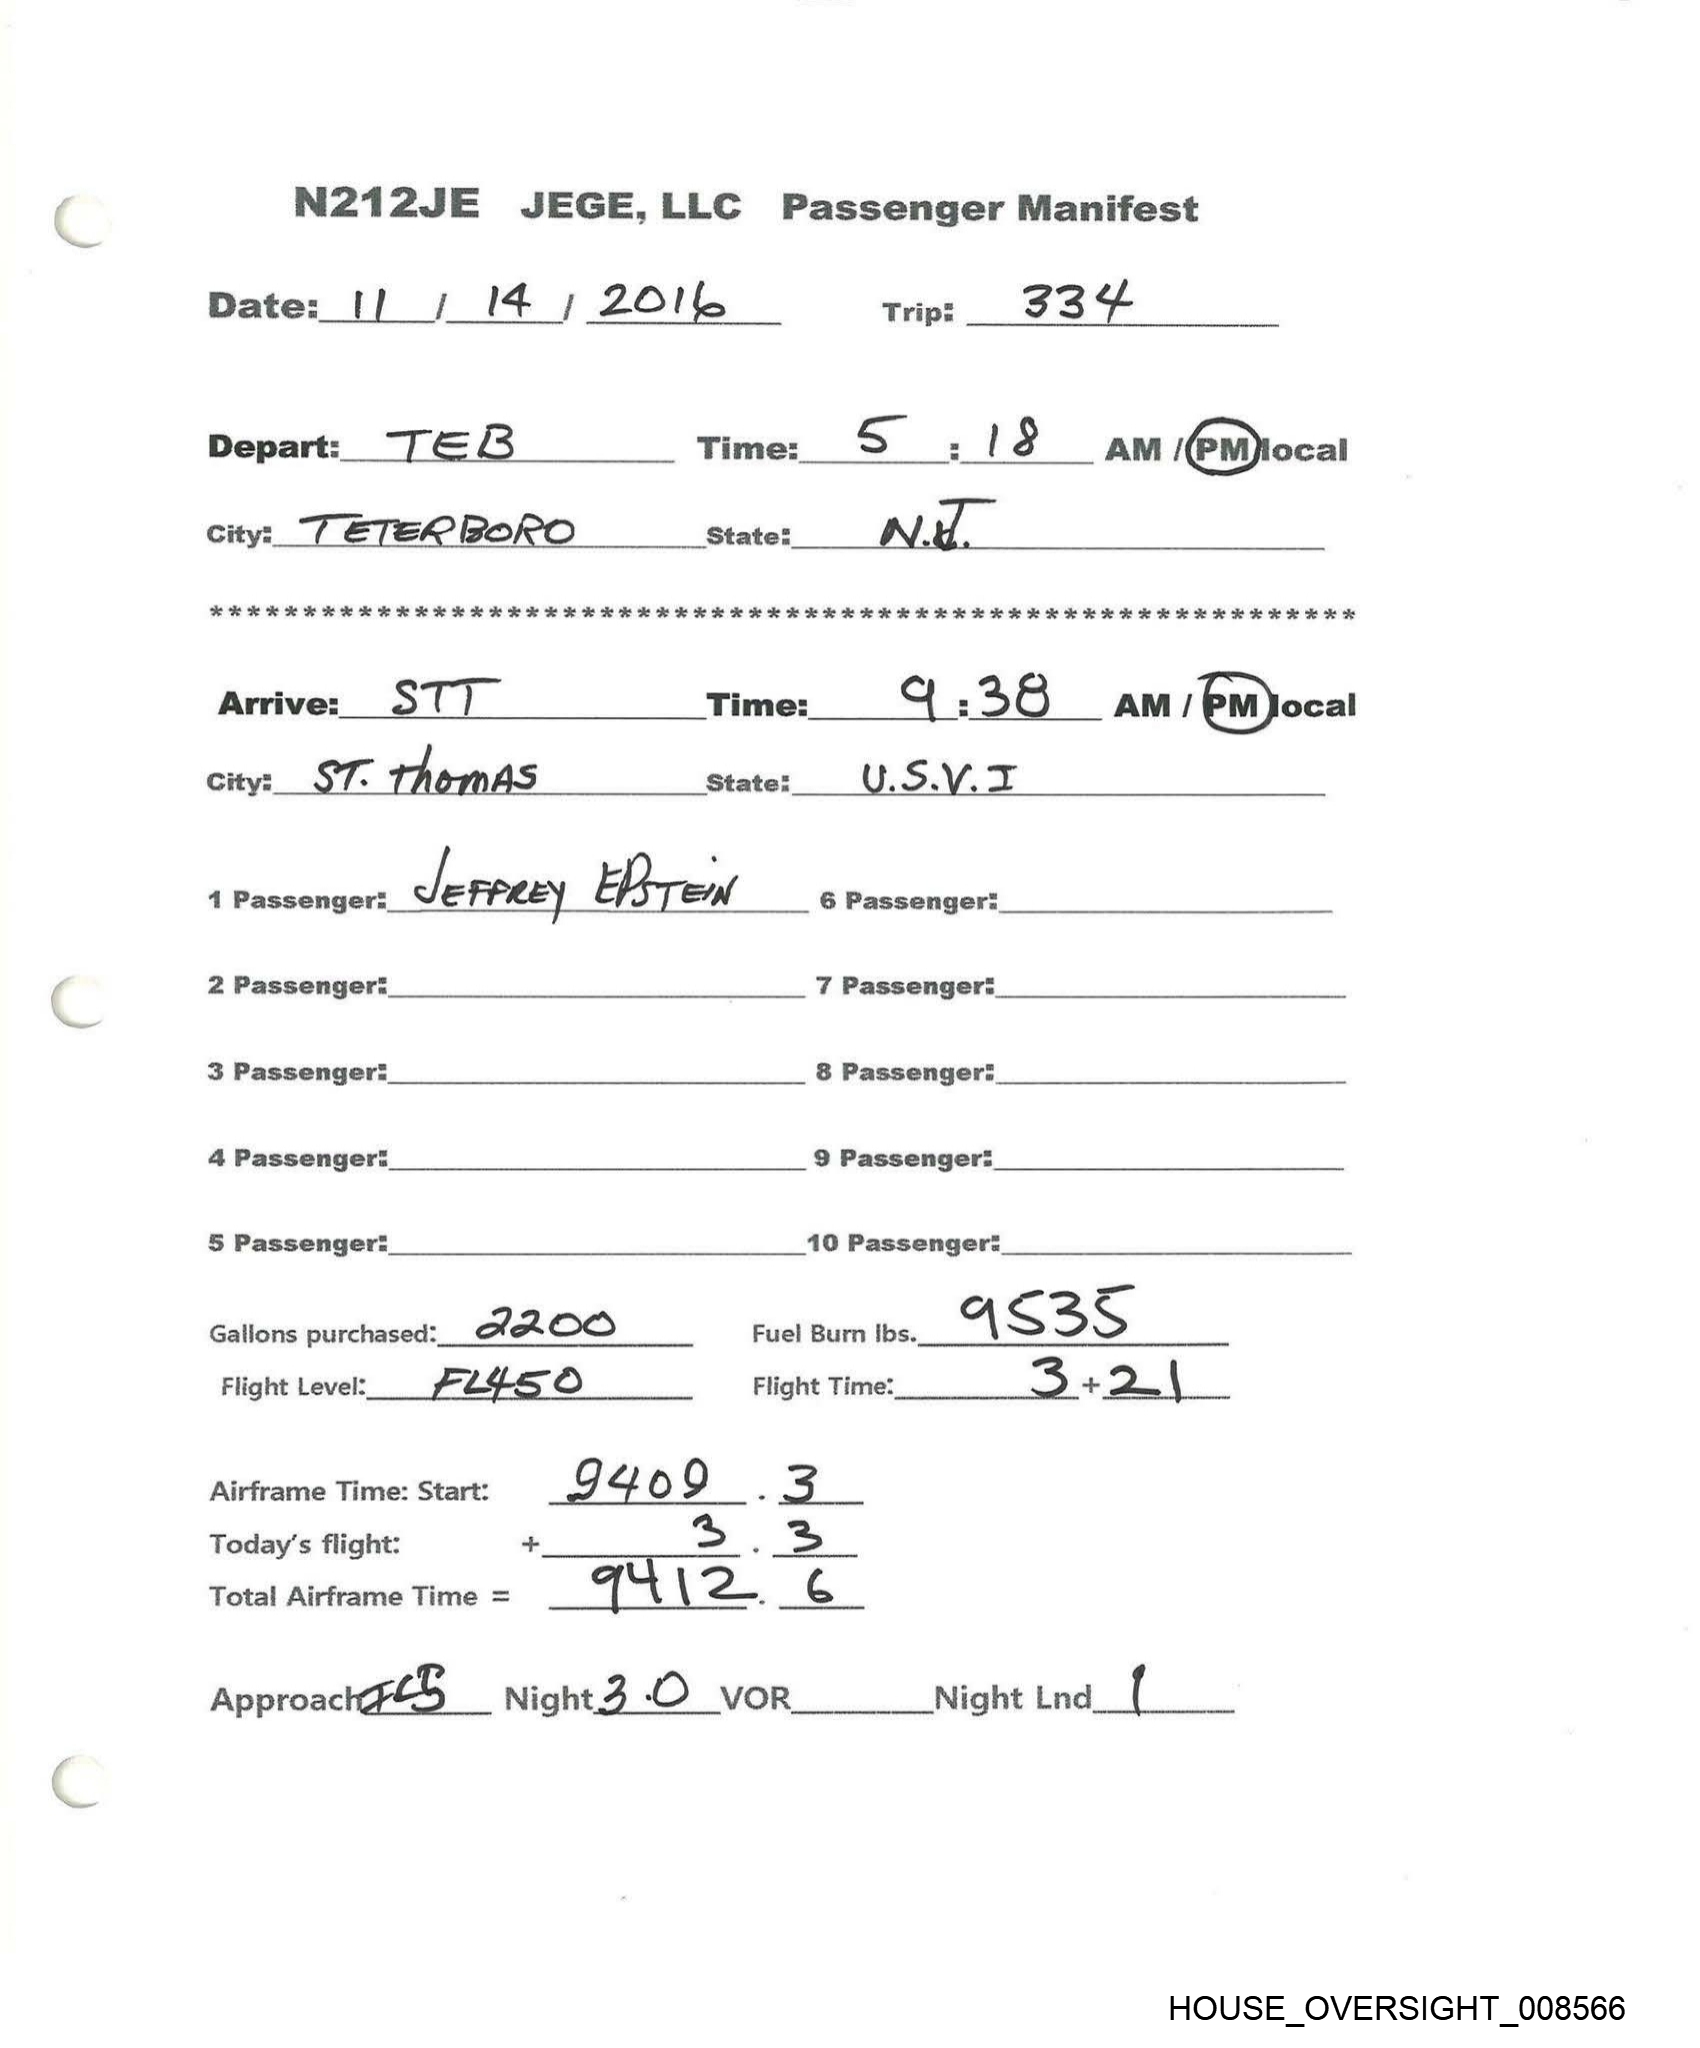 N212JE JEGE, LLC Passenger Manifest
Date: 11 / 14 / 2016 Trip: 334
Depart: TEB Time: 5 : 18 AM / PM local
City: TETERBORO State: N.J.
**************************************************************
Arrive: STT Time: 9 : 38 AM / PM local
City: ST. ThomAS State: U.S.V.I
1 Passenger: JEFFREY EPSTEIN 6 Passenger:
2 Passenger: 7 Passenger:
3 Passenger: 8 Passenger:
4 Passenger: 9 Passenger:
5 Passenger: 10 Passenger:
Gallons purchased: 2200 Fuel Burn lbs. 9535
Flight Level: FL450 Flight Time: 3 + 21
Airframe Time: Start: 9409 . 3
Today's flight: + 3 . 3
Total Airframe Time = 9412 . 6
Approach ILS Night 3.0 VOR Night Lnd 1
HOUSE_OVERSIGHT_008566